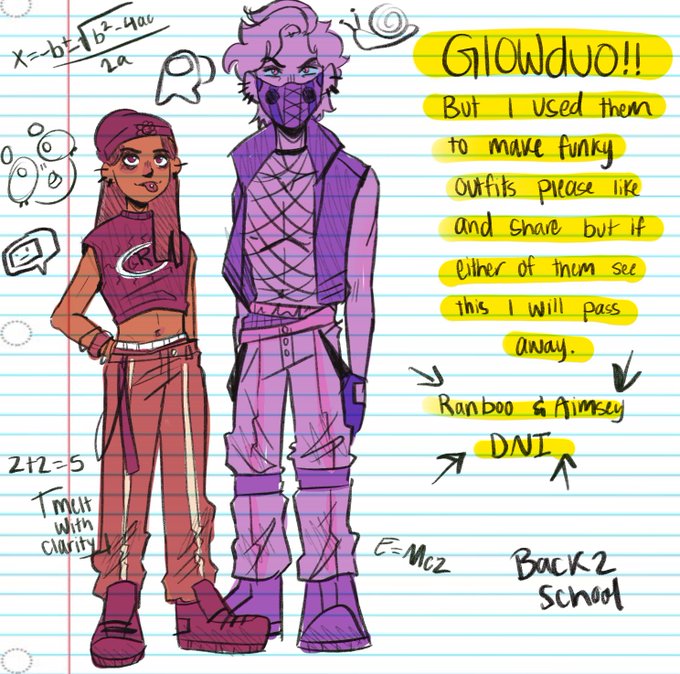 X=-b±√b²-4ac
2a
GlowduO!!
But I used them
to make funky
outfits please like
and share but if
either of them see
this I will pass
away.
Ranboo & Aimsey
DNI
2+2=5
melt
with
clarity
E=Mc2
Back 2
School